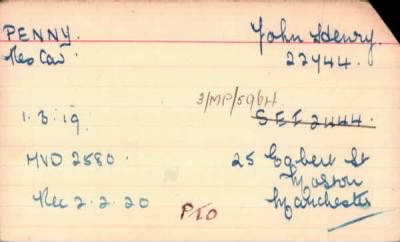 PENNY. John Henry.
Res Cav. 22744.
3/MP/596H
1.3.19. SET 2444.
HVO 2580. 25 Egbert St
Moston
Rec 2.2.20 Manchester
PTO